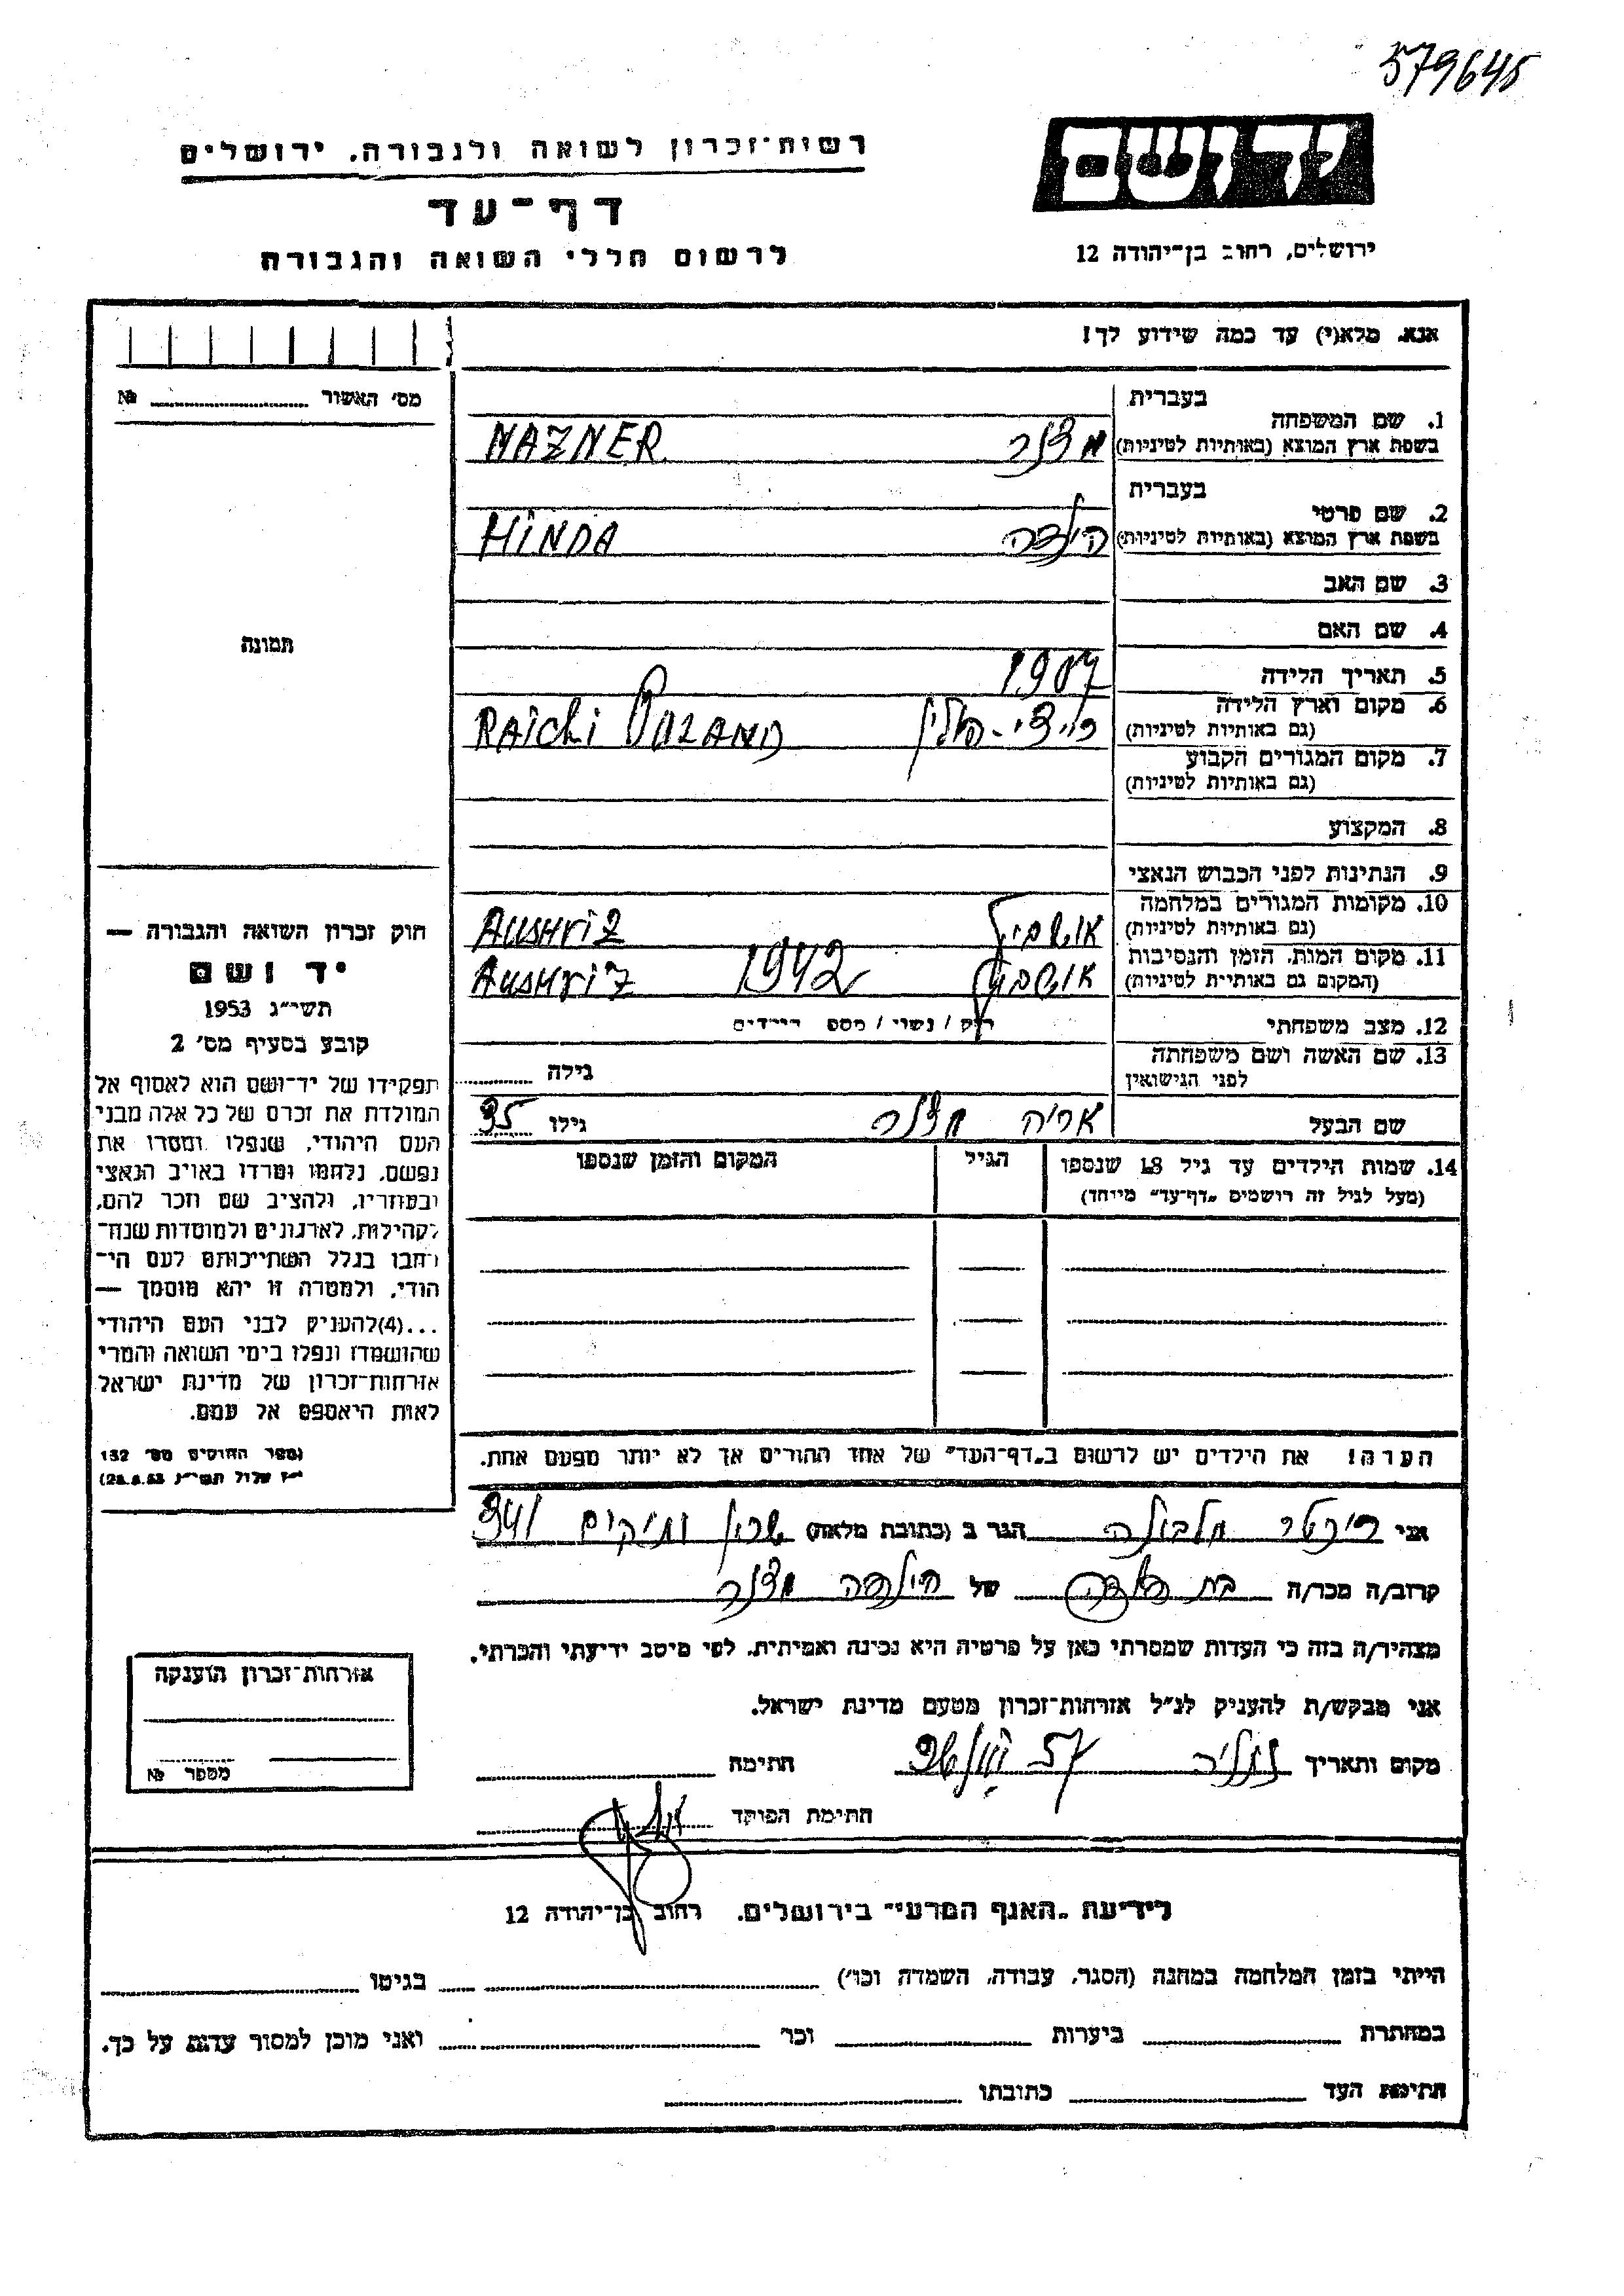 579645
יד ושם
רשות־זכרון לשואה ולגבורה, ירושלים
דף־עד
לרשום חללי השואה והגבורה
ירושלים, רחוב בן־יהודה 12
אנא, מלא(י) עד כמה שידוע לך!
מס׳ האשור №
1. שם המשפחה
בעברית
בשפת ארץ המוצא (באותיות לטיניות)
מצנר NAZNER
2. שם פרטי
בעברית
בשפת ארץ המוצא (באותיות לטיניות)
הינדה HINDA
3. שם האב
4. שם האם
5. תאריך הלידה 1907
6. מקום וארץ הלידה
(גם באותיות לטיניות)
RAICHI POLAND
7. מקום המגורים הקבוע
(גם באותיות לטיניות)
8. המקצוע
9. הנתינות לפני הכבוש הנאצי
10. מקומות המגורים במלחמה
(גם באותיות לטיניות)
אושביץ AUSHViZ
11. מקום המות, הזמן והנסיבות
(המקום גם באותיות לטיניות)
אושביץ 1942 AUSHViZ
12. מצב משפחתי רוק / נשוי / מספר הילדים
13. שם האשה ושם משפחתה
לפני הנישואין
גילה
שם הבעל אריה מצנר גילו 35
14. שמות הילדים עד גיל 18 שנספו
(מעל לגיל זה רושמים „דף־עד״ מיוחד)
הגיל
המקום והזמן שנספו
הערה! את הילדים יש לרשום ב„דף־העד״ של אחד ההורים אך לא יותר מפעם אחת.
תמונה
חוק זכרון השואה והגבורה —
יד ושם
תשי״ג 1953
קובע בסעיף מס׳ 2
תפקידו של יד־ושם הוא לאסוף אל
המולדת את זכרם של כל אלה מבני
העם היהודי, שנפלו ומסרו את
נפשם, נלחמו ומרדו באויב הנאצי
ובעוזריו, ולהציב שם וזכר להם,
לקהילות, לארגונים ולמוסדות שנח־
רבו בגלל השתייכותם לעם הי־
הודי, ולמטרה זו יהא מוסמך —
...(4) להעניק לבני העם היהודי
שהושמדו ונפלו בימי השואה והמרי
אזרחות־זכרון של מדינת ישראל
לאות היאספם אל עמם.
(ספר החוקים מס׳ 132
י״ז אלול תשי״ג 28.8.53)
אני מלבינה הגר ב (כתובת מלאה) שכון ותיקים 941
קרוב/ה מכר/ה בת הדודה של הינדה מצנר
מצהיר/ה בזה כי העדות שמסרתי כאן על פרטיה היא נכונה ואמיתית, לפי מיטב ידיעתי והכרתי.
אני מבקש/ת להעניק לנ״ל אזרחות־זכרון מטעם מדינת ישראל.
מקום ותאריך נתניה 57 חתימה
חתימת הפוקד
אזרחות־זכרון הוענקה
מספר №
לידיעת „האגף המדעי״ בירושלים, רחוב בן־יהודה 12
הייתי בזמן המלחמה במחנה (הסגר, עבודה, השמדה וכו׳) בגיטו
במחתרת ביערות וכו׳ ואני מוכן למסור עדות על כך.
חתימת העד כתובתו